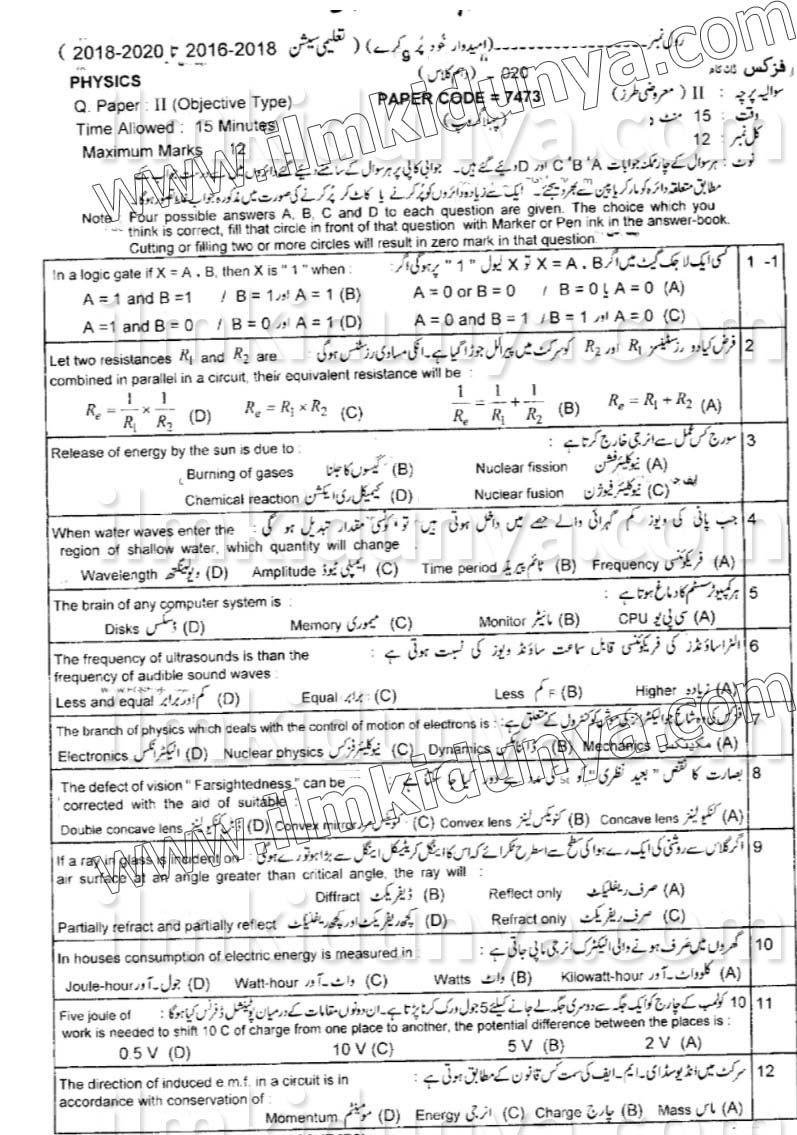 ( 2018-2020 تا 2016-2018 تعلیمی سیشن ) (امیدوار خود پُر کرے) رول نمبر
PHYSICS (دہم کلاس) فزکس
Q. Paper : II (Objective Type) PAPER CODE = 7473 سوالیہ پرچہ : II (معروضی طرز)
Time Allowed : 15 Minutes (پہلا گروپ) وقت : 15 منٹ
Maximum Marks : 12 کل نمبر : 12
نوٹ : ہر سوال کے چار ممکنہ جوابات A ، B ، C اور D دیئے گئے ہیں۔ جوابی کاپی پر ہر سوال کے سامنے دیئے گئے دائروں میں سے درست جواب کے
مطابق متعلقہ دائرہ کو مارکر یا پین سے بھر دیجئے۔ ایک سے زیادہ دائروں کو پُر کرنے یا کاٹ کر پُر کرنے کی صورت میں مذکورہ جواب غلط تصور ہو گا۔
Note : Four possible answers A, B, C and D to each question are given. The choice which you
think is correct, fill that circle in front of that question with Marker or Pen ink in the answer-book.
Cutting or filling two or more circles will result in zero mark in that question.
In a logic gate if X = A . B, then X is "1" when : کسی ایک لاجک گیٹ میں اگر X = A . B تو X لیول "1" پر ہو گی اگر : 1 -1
A = 1 and B =1 / B = 1 اور A = 1 (B) A = 0 or B = 0 / B = 0 یا A = 0 (A)
A =1 and B = 0 / B = 0 اور A = 1 (D) A = 0 and B = 1 / B = 1 اور A = 0 (C)
Let two resistances R1 and R2 are فرض کیا دو رزسٹینسز R1 اور R2 کو سرکٹ میں پیرالل جوڑا گیا ہے۔ انکی مساوی رزسٹنس ہو گی : 2
combined in parallel in a circuit, their equivalent resistance will be :
Re = 1/R1 × 1/R2 (D) Re = R1 × R2 (C) 1/Re = 1/R1 + 1/R2 (B) Re = R1 + R2 (A)
Release of energy by the sun is due to : سورج کس عمل سے انرجی خارج کرتا ہے : 3
Burning of gases گیسوں کا جلنا (B) Nuclear fission نیوکلیئر فشن (A)
Chemical reaction کیمیکل ری ایکشن (D) Nuclear fusion نیوکلیئر فیوژن (C)
When water waves enter the جب پانی کی ویوز کم گہرائی والے حصے میں داخل ہوتی ہیں تو کونسی مقدار تبدیل ہو گی : 4
region of shallow water, which quantity will change
Wavelength ویولینگتھ (D) Amplitude ایمپلی ٹیوڈ (C) Time period ٹائم پیریڈ (B) Frequency فریکوئنسی (A)
The brain of any computer system is : ہر کمپیوٹر سسٹم کا دماغ ہوتا ہے : 5
Disks ڈسکس (D) Memory میموری (C) Monitor مانیٹر (B) CPU سی پی یو (A)
The frequency of ultrasounds is than the الٹراساؤنڈز کی فریکوئنسی قابل سماعت ساؤنڈ ویوز کی نسبت ہوتی ہے : 6
frequency of audible sound waves :
Less and equal کم اور برابر (D) Equal برابر (C) Less کم (B) Higher زیادہ (A)
The branch of physics which deals with the control of motion of electrons is : فزکس کی وہ شاخ جو الیکٹرانز کی موشن کو کنٹرول کے متعلق ہے : 7
Electronics الیکٹرانکس (D) Nuclear physics نیوکلیئر فزکس (C) Dynamics ڈائنامکس (B) Mechanics مکینکس (A)
The defect of vision " Farsightedness " can be بصارت کا نقص " بعید نظری " کو کی مدد سے دور کیا جا سکتا ہے : 8
corrected with the aid of suitable :
Double concave lens ڈبل کنکیو لینز (D) Convex mirror کنویکس مرر (C) Convex lens کنویکس لینز (B) Concave lens کنکیو لینز (A)
If a ray in glass is incident on اگر گلاس سے روشنی کی ایک رے ہوا کی سطح سے اسطرح ٹکرائے کہ اس کا اینگل کریٹیکل اینگل سے بڑا ہو تو رے ہو گی : 9
air surface at an angle greater than critical angle, the ray will :
Diffract ڈیفریکٹ (B) Reflect only صرف ریفلیکٹ (A)
Partially refract and partially reflect کچھ ریفریکٹ اور کچھ ریفلیکٹ (D) Refract only صرف ریفریکٹ (C)
In houses consumption of electric energy is measured in : گھروں میں صرف ہونے والی الیکٹرک انرجی ماپی جاتی ہے : 10
Joule-hour جول۔آور (D) Watt-hour واٹ۔آور (C) Watts واٹ (B) Kilowatt-hour کلوواٹ۔آور (A)
Five joule of 10 کولمب کے چارج کو ایک جگہ سے دوسری جگہ لے جانے کیلئے 5 جول ورک کرنا پڑتا ہے۔ ان دونوں مقامات کے درمیان پوٹینشل ڈفرنس کیا ہو گا : 11
work is needed to shift 10 C of charge from one place to another, the potential difference between the places is :
0.5 V (D) 10 V (C) 5 V (B) 2 V (A)
The direction of induced e.m.f. in a circuit is in سرکٹ میں انڈیوسڈ ای۔ایم۔ایف کی سمت کس قانون کے مطابق ہوتی ہے : 12
accordance with conservation of :
Momentum مومینٹم (D) Energy انرجی (C) Charge چارج (B) Mass ماس (A)
www.ilmkidunya.com
ilmkidunya.com